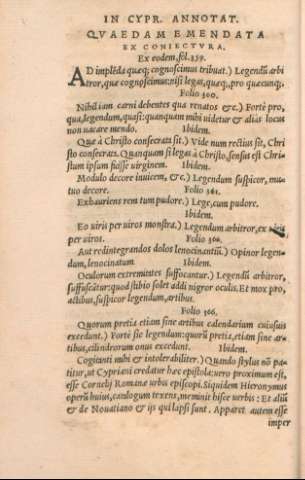 IN CYPR. ANNOTAT.
QVAEDAM EMENDATA
EX CONIECTVRA.
Ex eodem, fol. 259.
AD implēda quæq; cognoscimus tribuat.) Legendū arbi
tror, quæ cognoscimus: nisi legas, quæq, pro quæcunq;.
Folio 300.
Nihil iam carni debentes qua renatos &c.) Fortè pro,
qua, legendum, quasi: quanquam mihi uidetur & alias locus
non uacare mendo. Ibidem.
Quæ à Christo consecrasti sit.) Vide num rectius sit, Chri
sto consecrata. Quanquam si legas à Christo, sensus est Chri-
stum ipsum fecisse uirginem. Ibidem.
Modulo decore inuicem, &c.) Legendum suspicor, mu-
tuo decore. Folio 301.
Exhauriens rem tum pudore.) Lege, cum pudore.
Ibidem.
Eo uiris per uiros monstra.) Legendum arbitror, ex uiris
per uiros. Folio 302.
Aut redintegrandos dolos lenocinantiū.) Opinor legen-
dum, lenocinatum Ibidem.
Oculorum extremitates suffocantur.) Legendū arbitror,
suffuscātur: quod stibio solet addi nigror oculis. Et mox pro,
actibus, suspicor legendum, artibus.
Folio 306.
Quorum pretia etiam sine artibus calendarium cuiusuis
excedunt.) Fortè sic legendum: quorū pretia, etiam sine ar-
tibus, cilindrorum onus excedunt. Ibidem.
Cogienti mihi & intolerabiliter.) Quando stylus nō pa-
titur, ut Cypriani credatur hæc epistola: uero proximum est,
esse Cornelij Romanæ urbis episcopi. Siquidem Hieronymus
operū huius, catalogum texens, meminit hisce uerbis: Et aliū
& de Nouatiano & ijs qui lapsi sunt. Apparet autem esse
imper